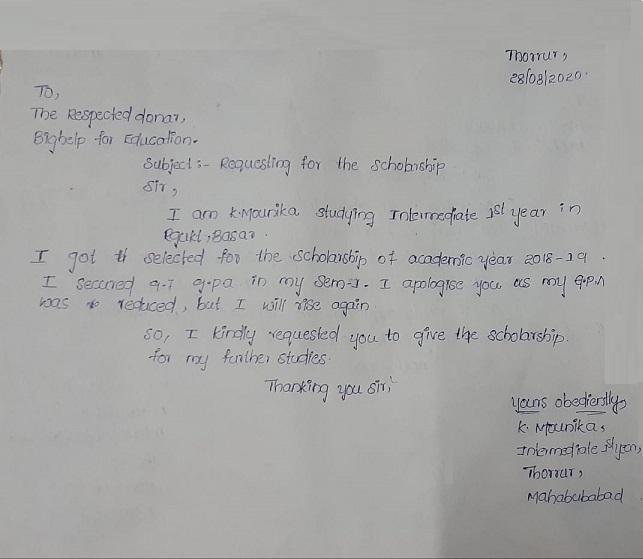 Thorrur,
28/08/2020.
To,
The Respected donar,
Bighelp for Education.
Subject:- Requesting for the scholarship
Sir,
I am K.Mounika studying Intermediate 1st year in
Rgukt, Basar.
I got selected for the scholarship of academic year 2018-19.
I secured 9.7 g.pa in my Sem-1. I apologise you as my G.P.A
was reduced, but I will rise again.
So, I kindly requested you to give the scholarship.
for my further studies.
Thanking you sir,
yours obediently,
K. Mounika,
Intermediate 1st year,
Thorrur,
Mahabubabad